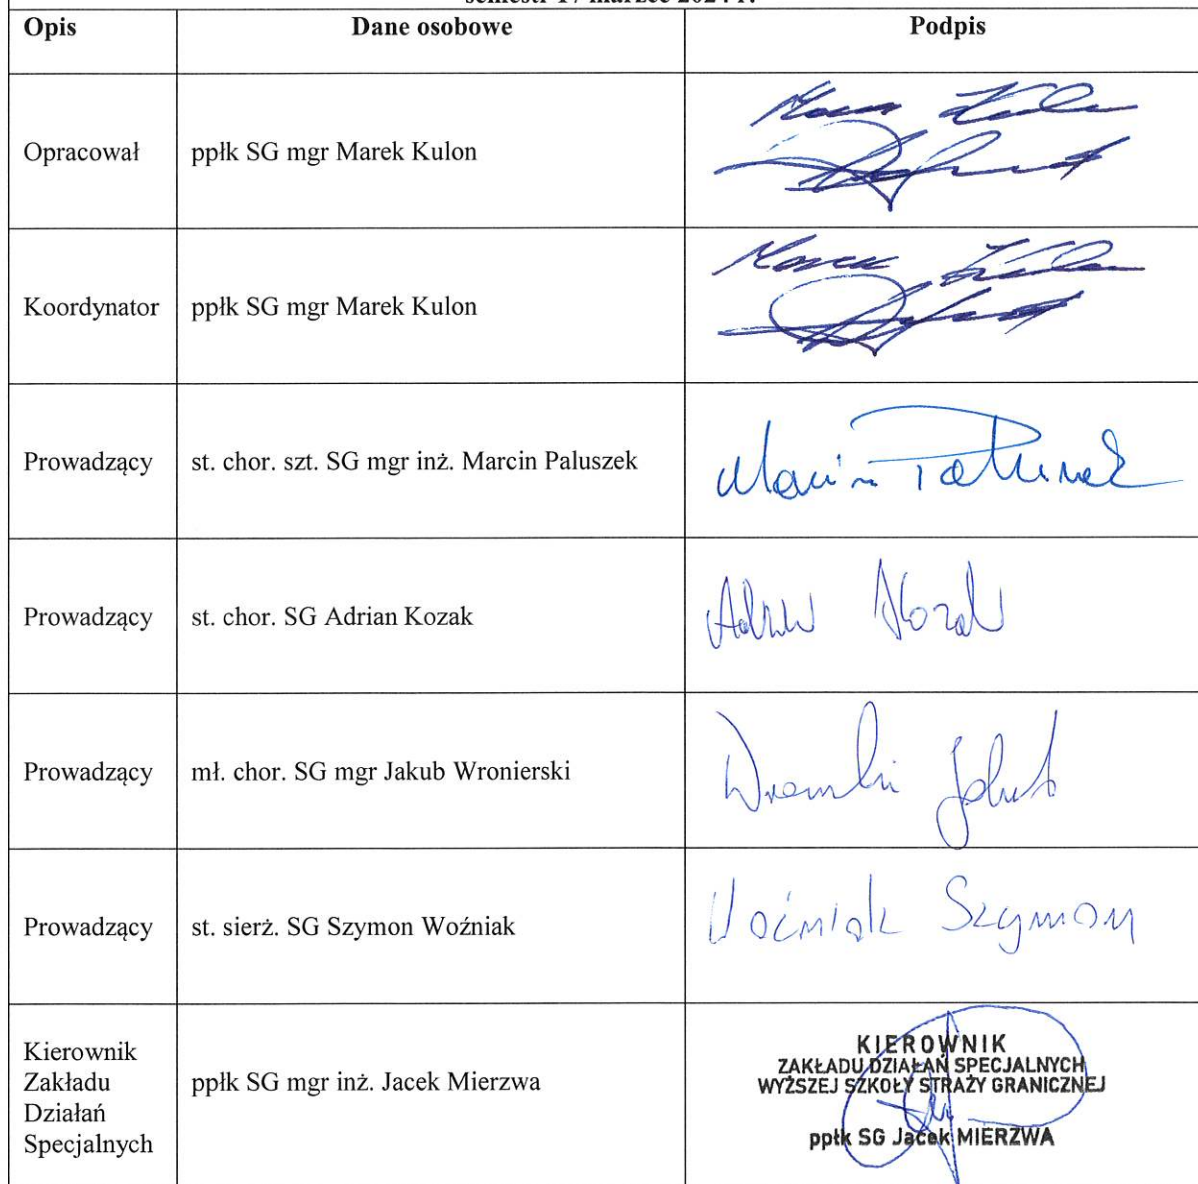 semestr 17 marzec 2024 r.
Opis Dane osobowe Podpis
Opracował ppłk SG mgr Marek Kulon
Koordynator ppłk SG mgr Marek Kulon
Prowadzący st. chor. szt. SG mgr inż. Marcin Paluszek Marcin Paluszek
Prowadzący st. chor. SG Adrian Kozak Adrian Kozak
Prowadzący mł. chor. SG mgr Jakub Wronierski Jakub
Prowadzący st. sierż. SG Szymon Woźniak Woźniak Szymon
Kierownik
Zakładu
Działań
Specjalnych
ppłk SG mgr inż. Jacek Mierzwa
KIEROWNIK
ZAKŁADU DZIAŁAŃ SPECJALNYCH
WYŻSZEJ SZKOŁY STRAŻY GRANICZNEJ
ppłk SG Jacek MIERZWA